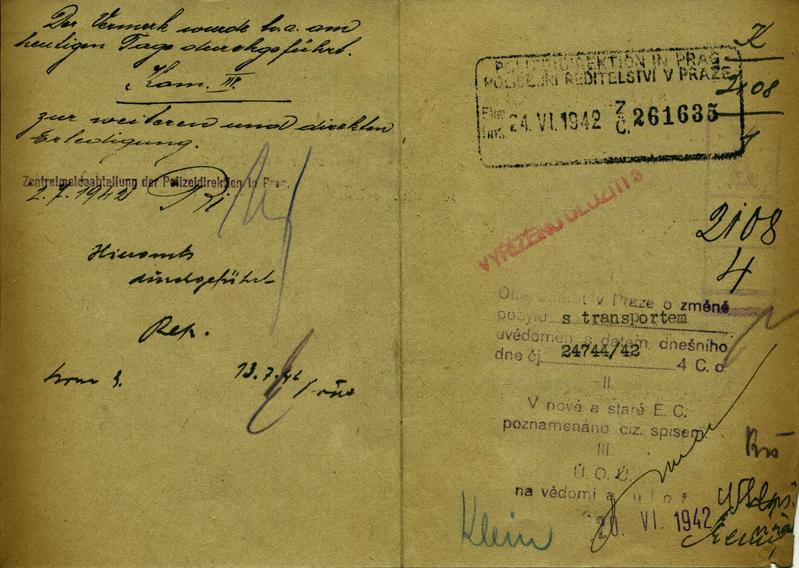 Der Vermerk wurde h.a. am
heutigen Tage durchgeführt.
Kom. III.
zur weiteren und direkten
Erledigung.
Zentralmeldeabteilung der Polizeidirektion in Prag.
2.7.1942
Hieramts
durchgeführt
Rek.
13.7.42
K
POLIZEIDIREKTION IN PRAG
POLICEJNÍ ŘEDITELSTVÍ V PRAZE
24. VI. 1942 Z. Č. 261635
2108
4
VYŘÍZENO ULOŽITI
2108
4
v Praze o změně
pobytu s transportem
uvědomen s datem dnešního
dne čj. 24744/42 4 C. o.
II.
V nové a staré E. C.
poznamenáno ciz. spisem
III.
Ú. O. Ú.
na vědomí a
20. VI. 1942
Klein